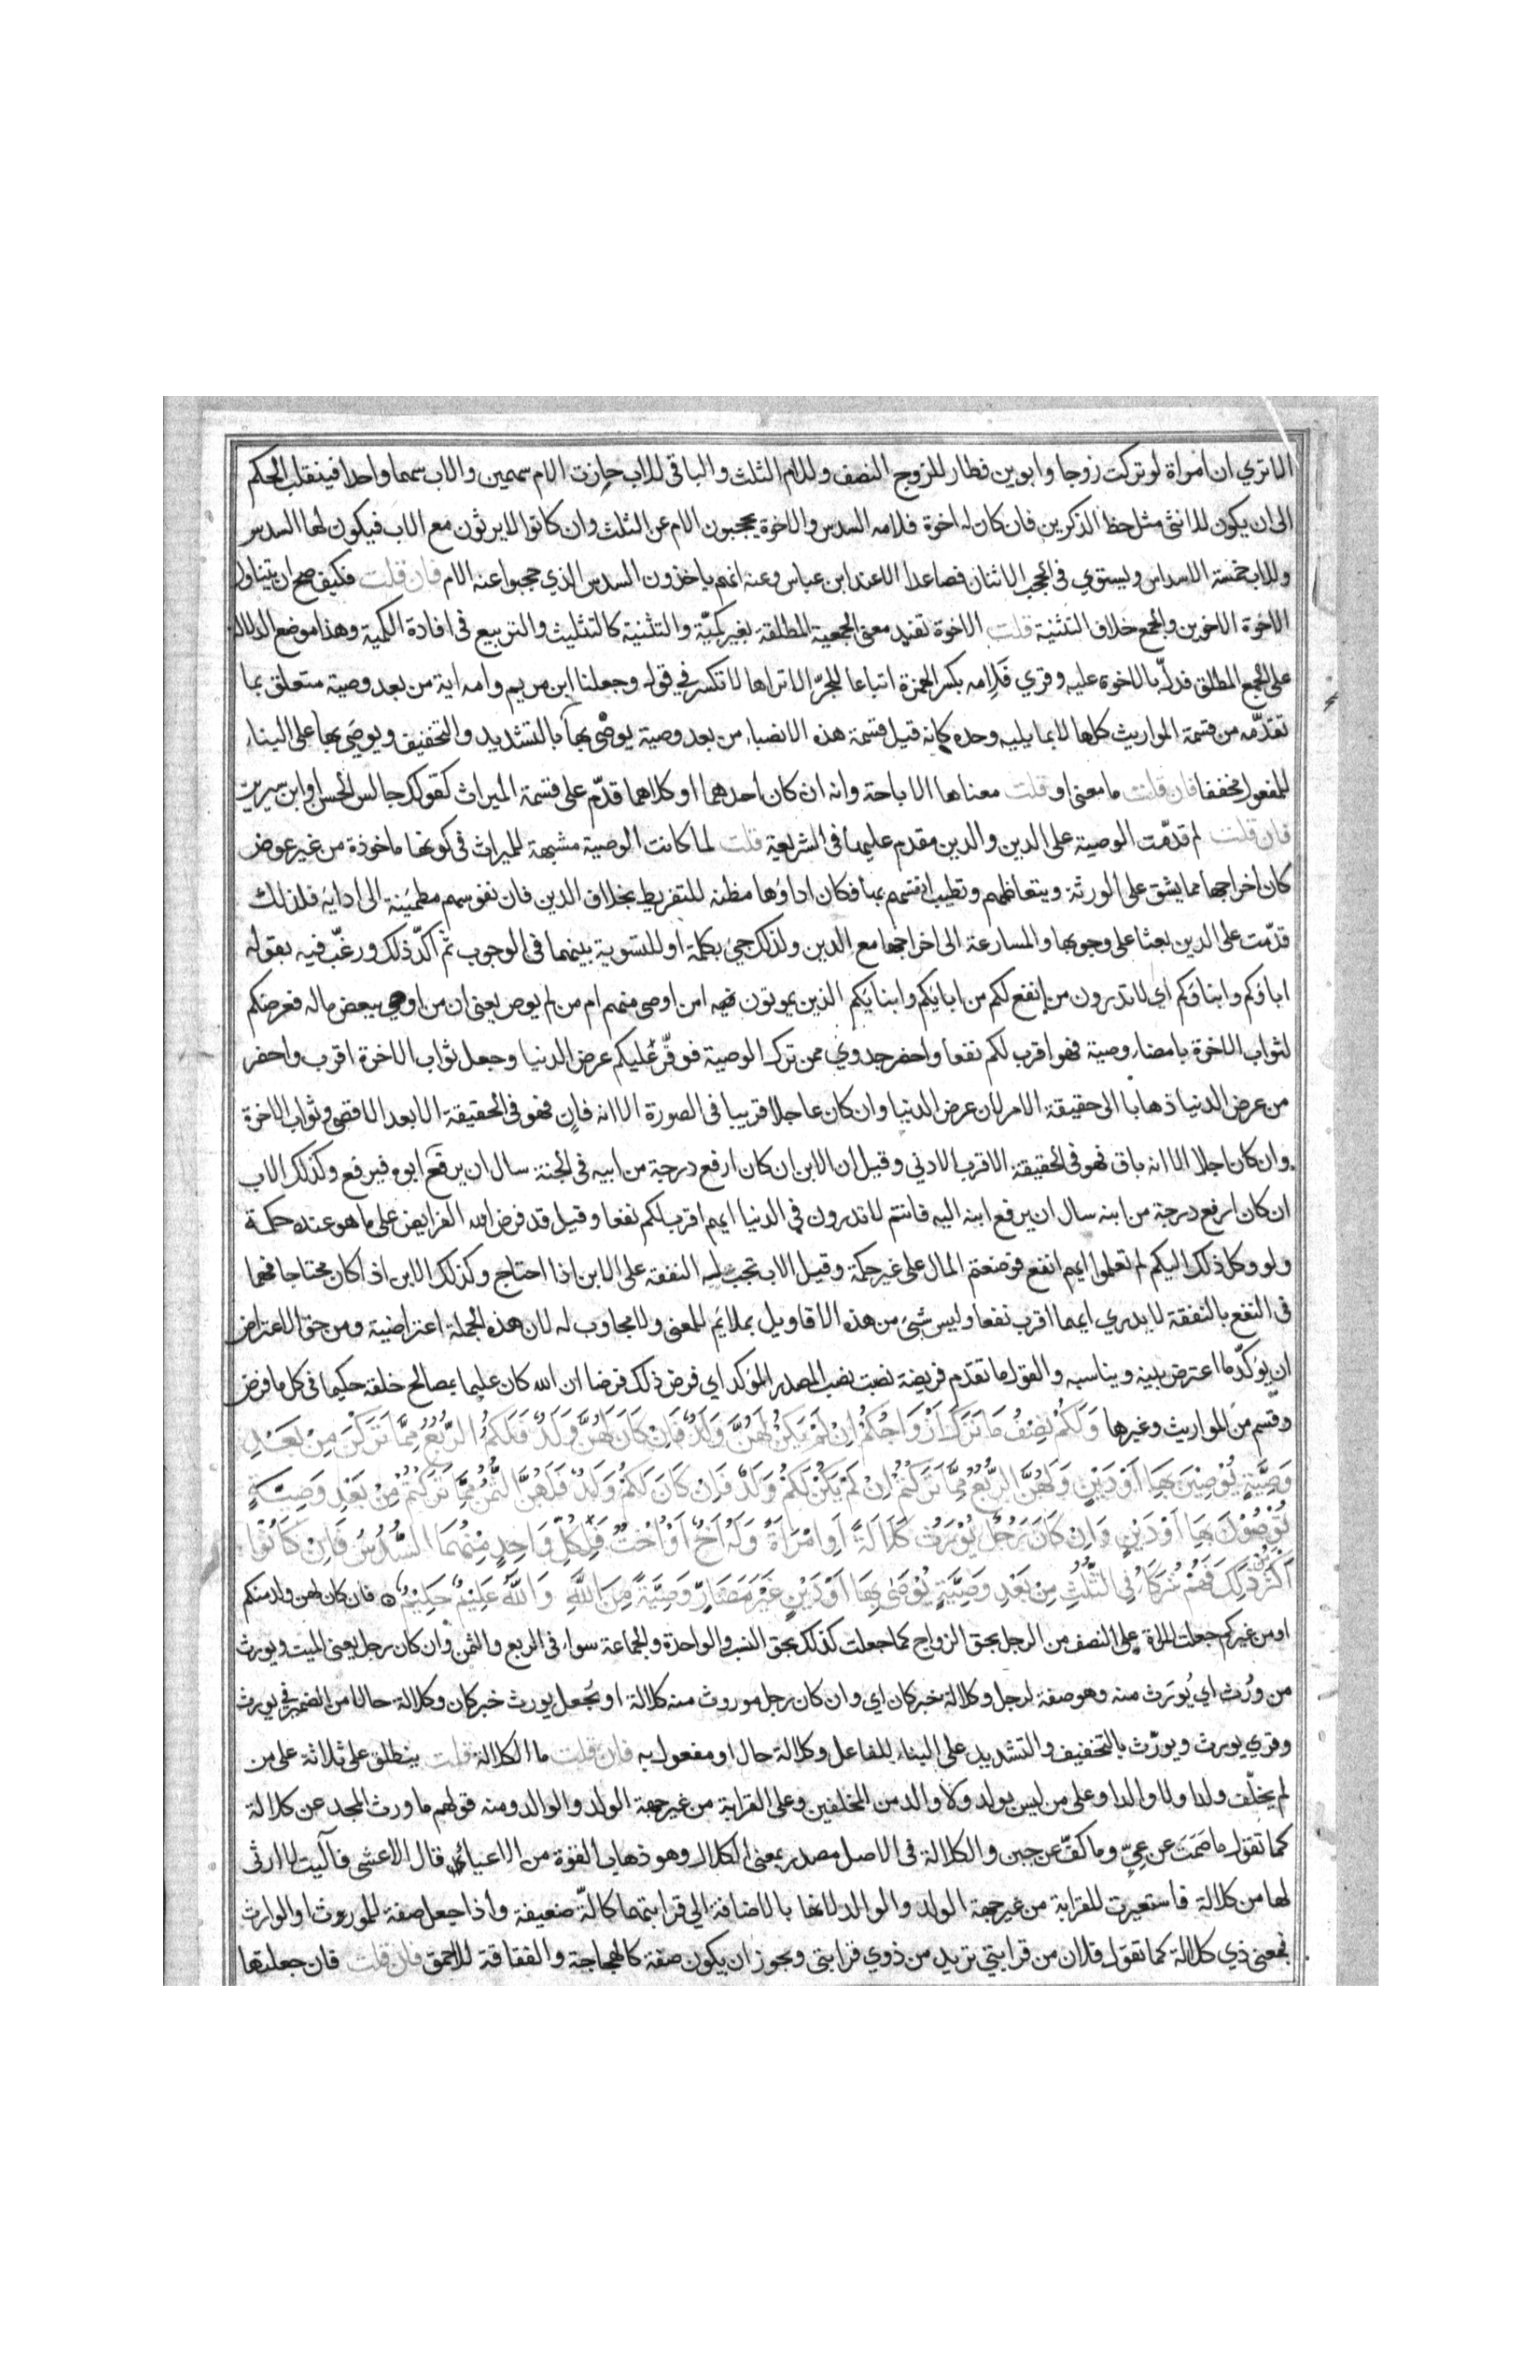 الا تري ان امراة لو تركت زوجا وابوين فصار للزوج النصف وللام الثلث والباقي للاب حازت الام سهمين والاب سهما واحدا فينقلب الحكم
الى ان يكون للانثى مثل حظ الذكرين فان كان له اخوة فلامه السدس والاخوة يحجبون الام عن الثلث وان كانوا لا يرثون مع الاب فيكون لها السدس
وللاب خمسة الاسداس ويستوي في الحجب الاثنان فصاعدا الا عند ابن عباس وعنه انهم ياخذون السدس الذي حجبوا عنه الام فان قلت فكيف صح ان يتناول
الاخوة الاخوين والجمع خلاف التثنية قلت الاخوة تفيد معنى الجمعية المطلقة بغير كميّة والتثنية كالتثليث والتربيع في افادة الكمية وهذا موضع الدلالة
على الجمع المطلق فدلّ بالاخوة عليه وقري فَلِامه بكسر الهمزة اتباعا للجرّ الا تراها لا تكسر في قوله وجعلنا ابن مريم وامه اية من بعد وصية متعلق بما
تقدّمه من قسمة المواريث كلها لا بما يليه وحده كانه قيل قسمة هذه الانصباء من بعد وصية يوصى بها بالتشديد والتخفيف ويوصَى بها على البناء
للمفعول مخففا فان قلت ما معنى او قلت معناها الاباحة وانه ان كان احدهما او كلاهما قدّم على قسمة الميراث كقولك جالس الحسن او ابن سيرين
فان قلت لم قدّمت الوصية على الدين والدين مقدم عليها في الشريعة قلت لما كانت الوصية مشبهة للميراث في كونها ماخوذة من غير عوض
كان اخراجها مما يشق على الورثة ويتعاظمهم وتطيب انفسهم بها فكان اداؤها مظنه للتفريط بخلاف الدين فان نفوسهم مطمئنة الى ادايه فلذلك
قدّمت على الدين بعثا على وجوبها والمسارعة الى اخراجها مع الدين ولذلك جئ بكلمة او للتسوية بينهما في الوجوب ثم اكّد ذلك ورغّب فيه بقوله
اباؤكم وابناؤكم اي لا تدرون من انفع لكم من ابايكم وابنايكم الذين يموتون امن اوصى منهم ام من لم يوص يعني ان من اوصى ببعض ماله فعرضكم
لثواب الاخرة بامضاء وصية فهو اقرب لكم نفعا واحضر جدوي ممن ترك الوصية فوفّر عليكم عرض الدنيا وجعل ثواب الاخرة اقرب واحضر
من عرض الدنيا ذهابا الى حقيقة الامر لان عرض الدنيا وان كان عاجلا قريبا في الصورة الا انه فانٍ فهو في الحقيقة الابعد الاقصى وثواب الاخرة
وان كان اجلا الا انه باق فهو في الحقيقة الاقرب الادني وقيل ان الابن ان كان ارفع درجة من ابيه في الجنة سال ان يرفع ابوه فيرفع وكذلك الاب
ان كان ارفع درجة من ابنه سال ان يرفع ابنه اليه فانتم لا تدرون في الدنيا ايهم اقرب لكم نفعا وقيل قد فرض الله الفرايض على ما هو عنده حكمة
ولو وكل ذلك اليكم لم تعلموا ايهم انفع فوضعتم المال على غير حكمة وقيل الاب تجب له النفقة على الابن اذا احتاج وكذلك الابن اذا كان محتاجا فهما
في النفع بالنفقة لا يدري ايهما اقرب نفعا وليس شئ من هذه الاقاويل بملايم للمعنى ولا مجاوب له لان هذه الجملة اعتراضية ومن حق الاعتراض
ان يؤكّد ما اعترض بينه ويناسبه والقول ما تقدّم فريضة نصبت نصب المصدر المؤكد اي فرض ذلك فرضا ان الله كان عليما بمصالح خلقه حكيما في كل ما فرض
وقسم من المواريث وغيرها وَلَكُمْ نِصْفُ مَا تَرَكَ اَزْوَاجُكُمْ اِنْ لَمْ يَكُنْ لَهُنَّ وَلَدٌ فَاِنْ كَانَ لَهُنَّ وَلَدٌ فَلَكُمُ الرُّبُعُ مِمَّا تَرَكْنَ مِنْ بَعْدِ
وَصِيَّةٍ يُوْصِيْنَ بِهَا اَوْ دَيْنٍ وَلَهُنَّ الرُّبُعُ مِمَّا تَرَكْتُمْ اِنْ لَمْ يَكُنْ لَكُمْ وَلَدٌ فَاِنْ كَانَ لَكُمْ وَلَدٌ فَلَهُنَّ الثُّمُنُ مِمَّا تَرَكْتُمْ مِنْ بَعْدِ وَصِيَّةٍ
تُوْصُوْنَ بِهَا اَوْ دَيْنٍ وَاِنْ كَانَ رَجُلٌ يُوْرَثُ كَلَالَةً اَوِ امْرَاَةٌ وَلَهُ اَخٌ اَوْ اُخْتٌ فَلِكُلِّ وَاحِدٍ مِنْهُمَا السُّدُسُ فَاِنْ كَانُوْا
اَكْثَرَ مِنْ ذٰلِكَ فَهُمْ شُرَكَاءُ فِي الثُّلُثِ مِنْ بَعْدِ وَصِيَّةٍ يُوْصٰى بِهَا اَوْ دَيْنٍ غَيْرَ مُضَارٍّ وَصِيَّةً مِنَ اللّٰهِ وَاللّٰهُ عَلِيْمٌ حَلِيْمٌ فان كان لهن ولد منكم
او من غيركم جعلت المراة على النصف من الرجل بحق الزواج كما جعلت كذلك بحق النسب والواحدة والجماعة سواء في الربع والثمن وان كان رجل يعني الميت ويورث
من وُرث اي يُورَث منه وهو صفة لرجل وكلالة خبر كان اي وان كان رجل موروث منه كلالة او يُجعل يورث خبر كان وكلالة حالا من الضمير في يورث
وقري يورث ويورّث بالتخفيف والتشديد على البناء للفاعل وكلالة حال او مفعول به فان قلت ما الكلالة قلت ينطلق على ثلاثة على من
لم يخلّف ولدا ولا والدا وعلى من ليس بولد ولا والد من المخلفين وعلى القرابة من غير جهة الولد والوالد ومنه قولهم ما ورث المجد عن كلالة
كما تقول ما صَمَتَ عن عِيٍّ وما كفّ عن جبن والكلالة في الاصل مصدر بمعنى الكلال وهو ذهاب القوة من الاعياء قال الاعشى فآليت لا ارثى
لها من كلالة فاستعيرت للقرابة من غير جهة الولد والوالد لانها بالاضافة الي قرابتهما كالّة ضعيفة واذا جعل صفة للموروث او الوارث
فبمعنى ذي كلالة كما تقول فلان من قرابتي تريد من ذوي قرابتى ويجوز ان يكون صفة كالهجاجة والفقاقة للاحمق فان قلت فان جعلتها